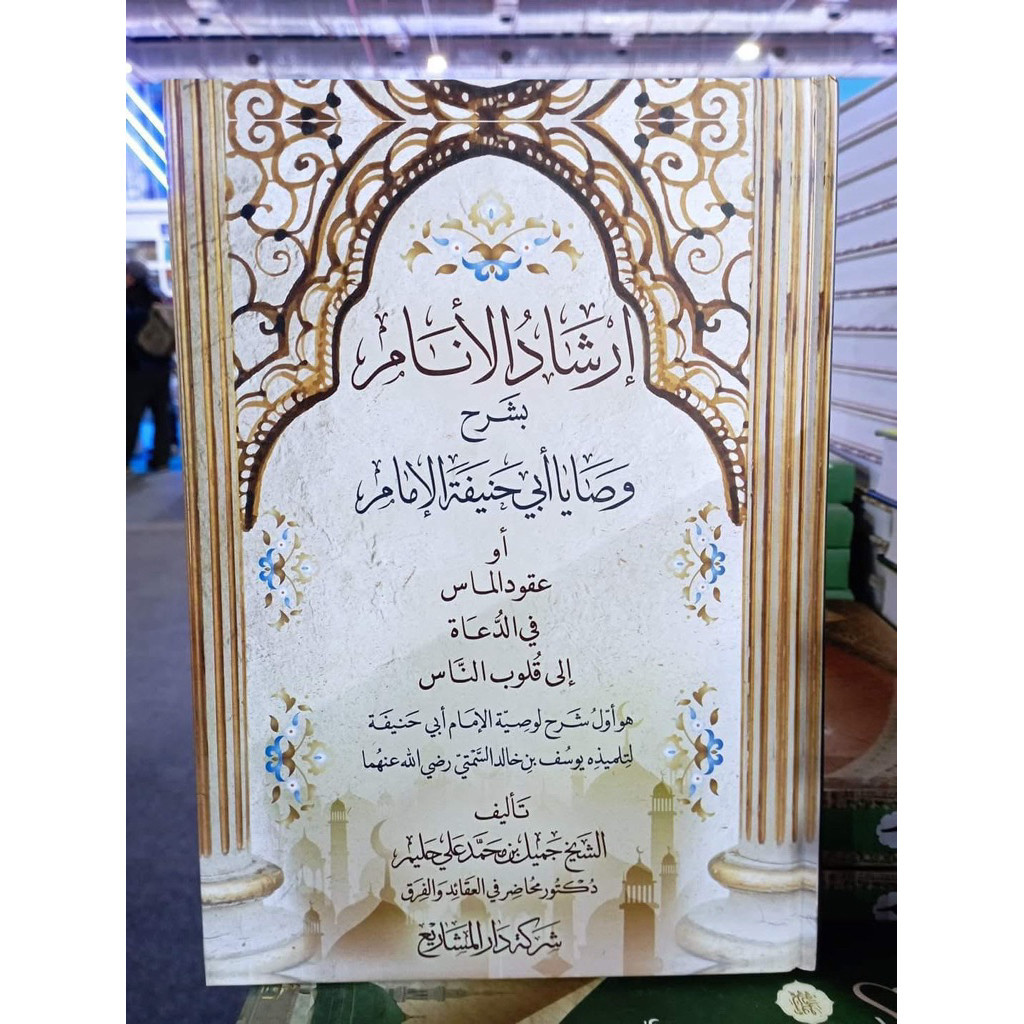 إرشادُ الأنام
بشرح
وصايا أبي حنيفة الإمام
أو
عقود الماس
في الدُّعاة
إلى قُلوب النَّاس
هو أوّلُ شرح لوصيّة الإمام أبي حَنيفَة
لِتلميذِه يوسُف بن خالد السَّمْتيّ رضي الله عنهُما
تأليف
الشيخ جَميل بن محمَّد علي حليم
دُكتور محُاضِر في العقائِد والفِرق
شركة دار المشاريع